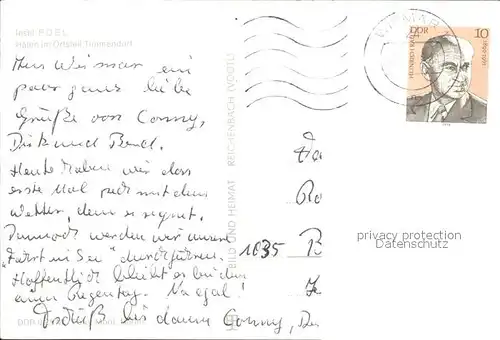 Insel POEL
Hafen im Ortsteil Timmendorf
Aus Wismar ein
paar ganz liebe
Grüße von Conny,
Dirk und Bernd.
Heute haben wir das
erste Mal Pech mit dem
Wetter, denn es regnet.
Dennoch werden wir unsere
"Fahrt in See" durchführen.
Hoffentlich bleibt es bei den
einen Regentag. Na egal!
Tschüß bis dann Conny,
BILD UND HEIMAT REICHENBACH (VOGTL)
WISMAR
DDR 10
HEINRICH RAU
1899-1961
1035
privacy protection
Datenschutz